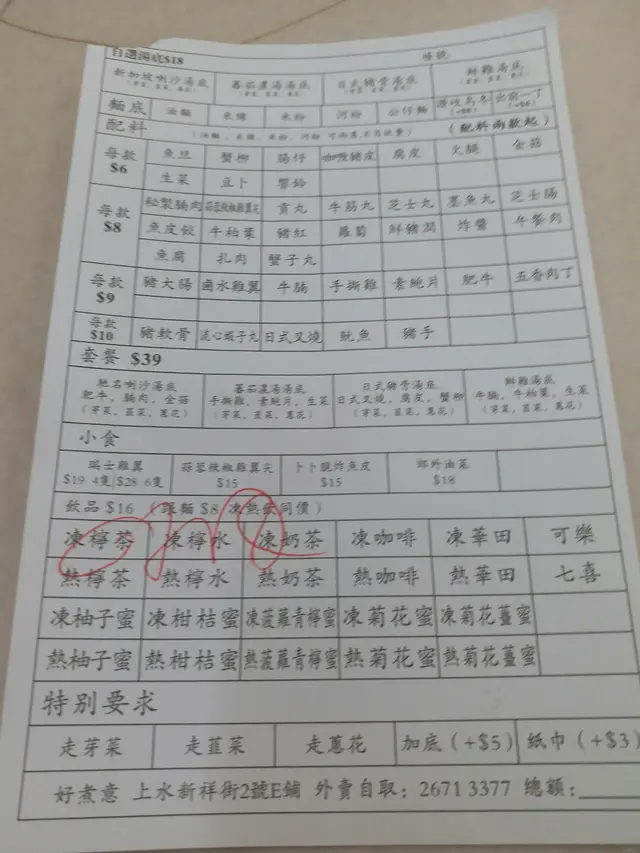 自選湯底$18
新加坡喇沙湯底 蕃茄濃湯湯底 日式豬骨湯底 鮮雞湯底
(芽菜, 韮菜, 蔥花) (芽菜, 韮菜, 蔥花) (芽菜, 韮菜, 蔥花) (芽菜, 韮菜, 蔥花)
麵底 油麵 米線 米粉 河粉 公仔麵 讚岐烏冬 出前一丁
配料 (配料兩款起)
每款 $6 魚旦 蟹柳 腸仔 咖喱豬皮 腐皮 火腿 金菇
生菜 豆卜 響鈴
每款 $8 秘製腩肉 蒜蓉辣椒雞翼尖 貢丸 牛筋丸 芝士丸 墨魚丸 芝士腸
魚皮餃 牛柏葉 豬紅 蘿蔔 鮮豬潤 炸醬 午餐肉
魚腐 扎肉 蟹子丸
每款 $9 豬大腸 鹵水雞翼 牛腩 手撕雞 素鮑片 肥牛 五香肉丁
每款 $10 豬軟骨 流心蝦子丸 日式叉燒 魷魚 豬手
套餐 $39
馳名喇沙湯底 蕃茄濃湯湯底 日式豬骨湯底 鮮雞湯底
肥牛, 腩肉, 金菇 手撕雞, 素鮑片, 生菜 日式叉燒, 腐皮, 蟹柳 牛腩, 牛柏葉, 生菜
(芽菜, 韮菜, 蔥花) (芽菜, 韮菜, 蔥花) (芽菜, 韮菜, 蔥花) (芽菜, 韮菜, 蔥花)
小食
瑞士雞翼 蒜蓉辣椒雞翼尖 卜卜脆炸魚皮 郊外油菜
$19 4隻 $28 6隻 $15 $15 $18
飲品 $16 (跟麵 $8 凍熱飲同價)
凍檸茶 凍檸水 凍奶茶 凍咖啡 凍華田 可樂
熱檸茶 熱檸水 熱奶茶 熱咖啡 熱華田 七喜
凍柚子蜜 凍柑桔蜜 凍菠蘿青檸蜜 凍菊花蜜 凍菊花薑蜜
熱柚子蜜 熱柑桔蜜 熱菠蘿青檸蜜 熱菊花蜜 熱菊花薑蜜
特別要求
走芽菜 走韮菜 走蔥花 加底(+$5) 紙巾(+$3)
好煮意 上水新祥街2號E舖 外賣自取: 2671 3377 總額: